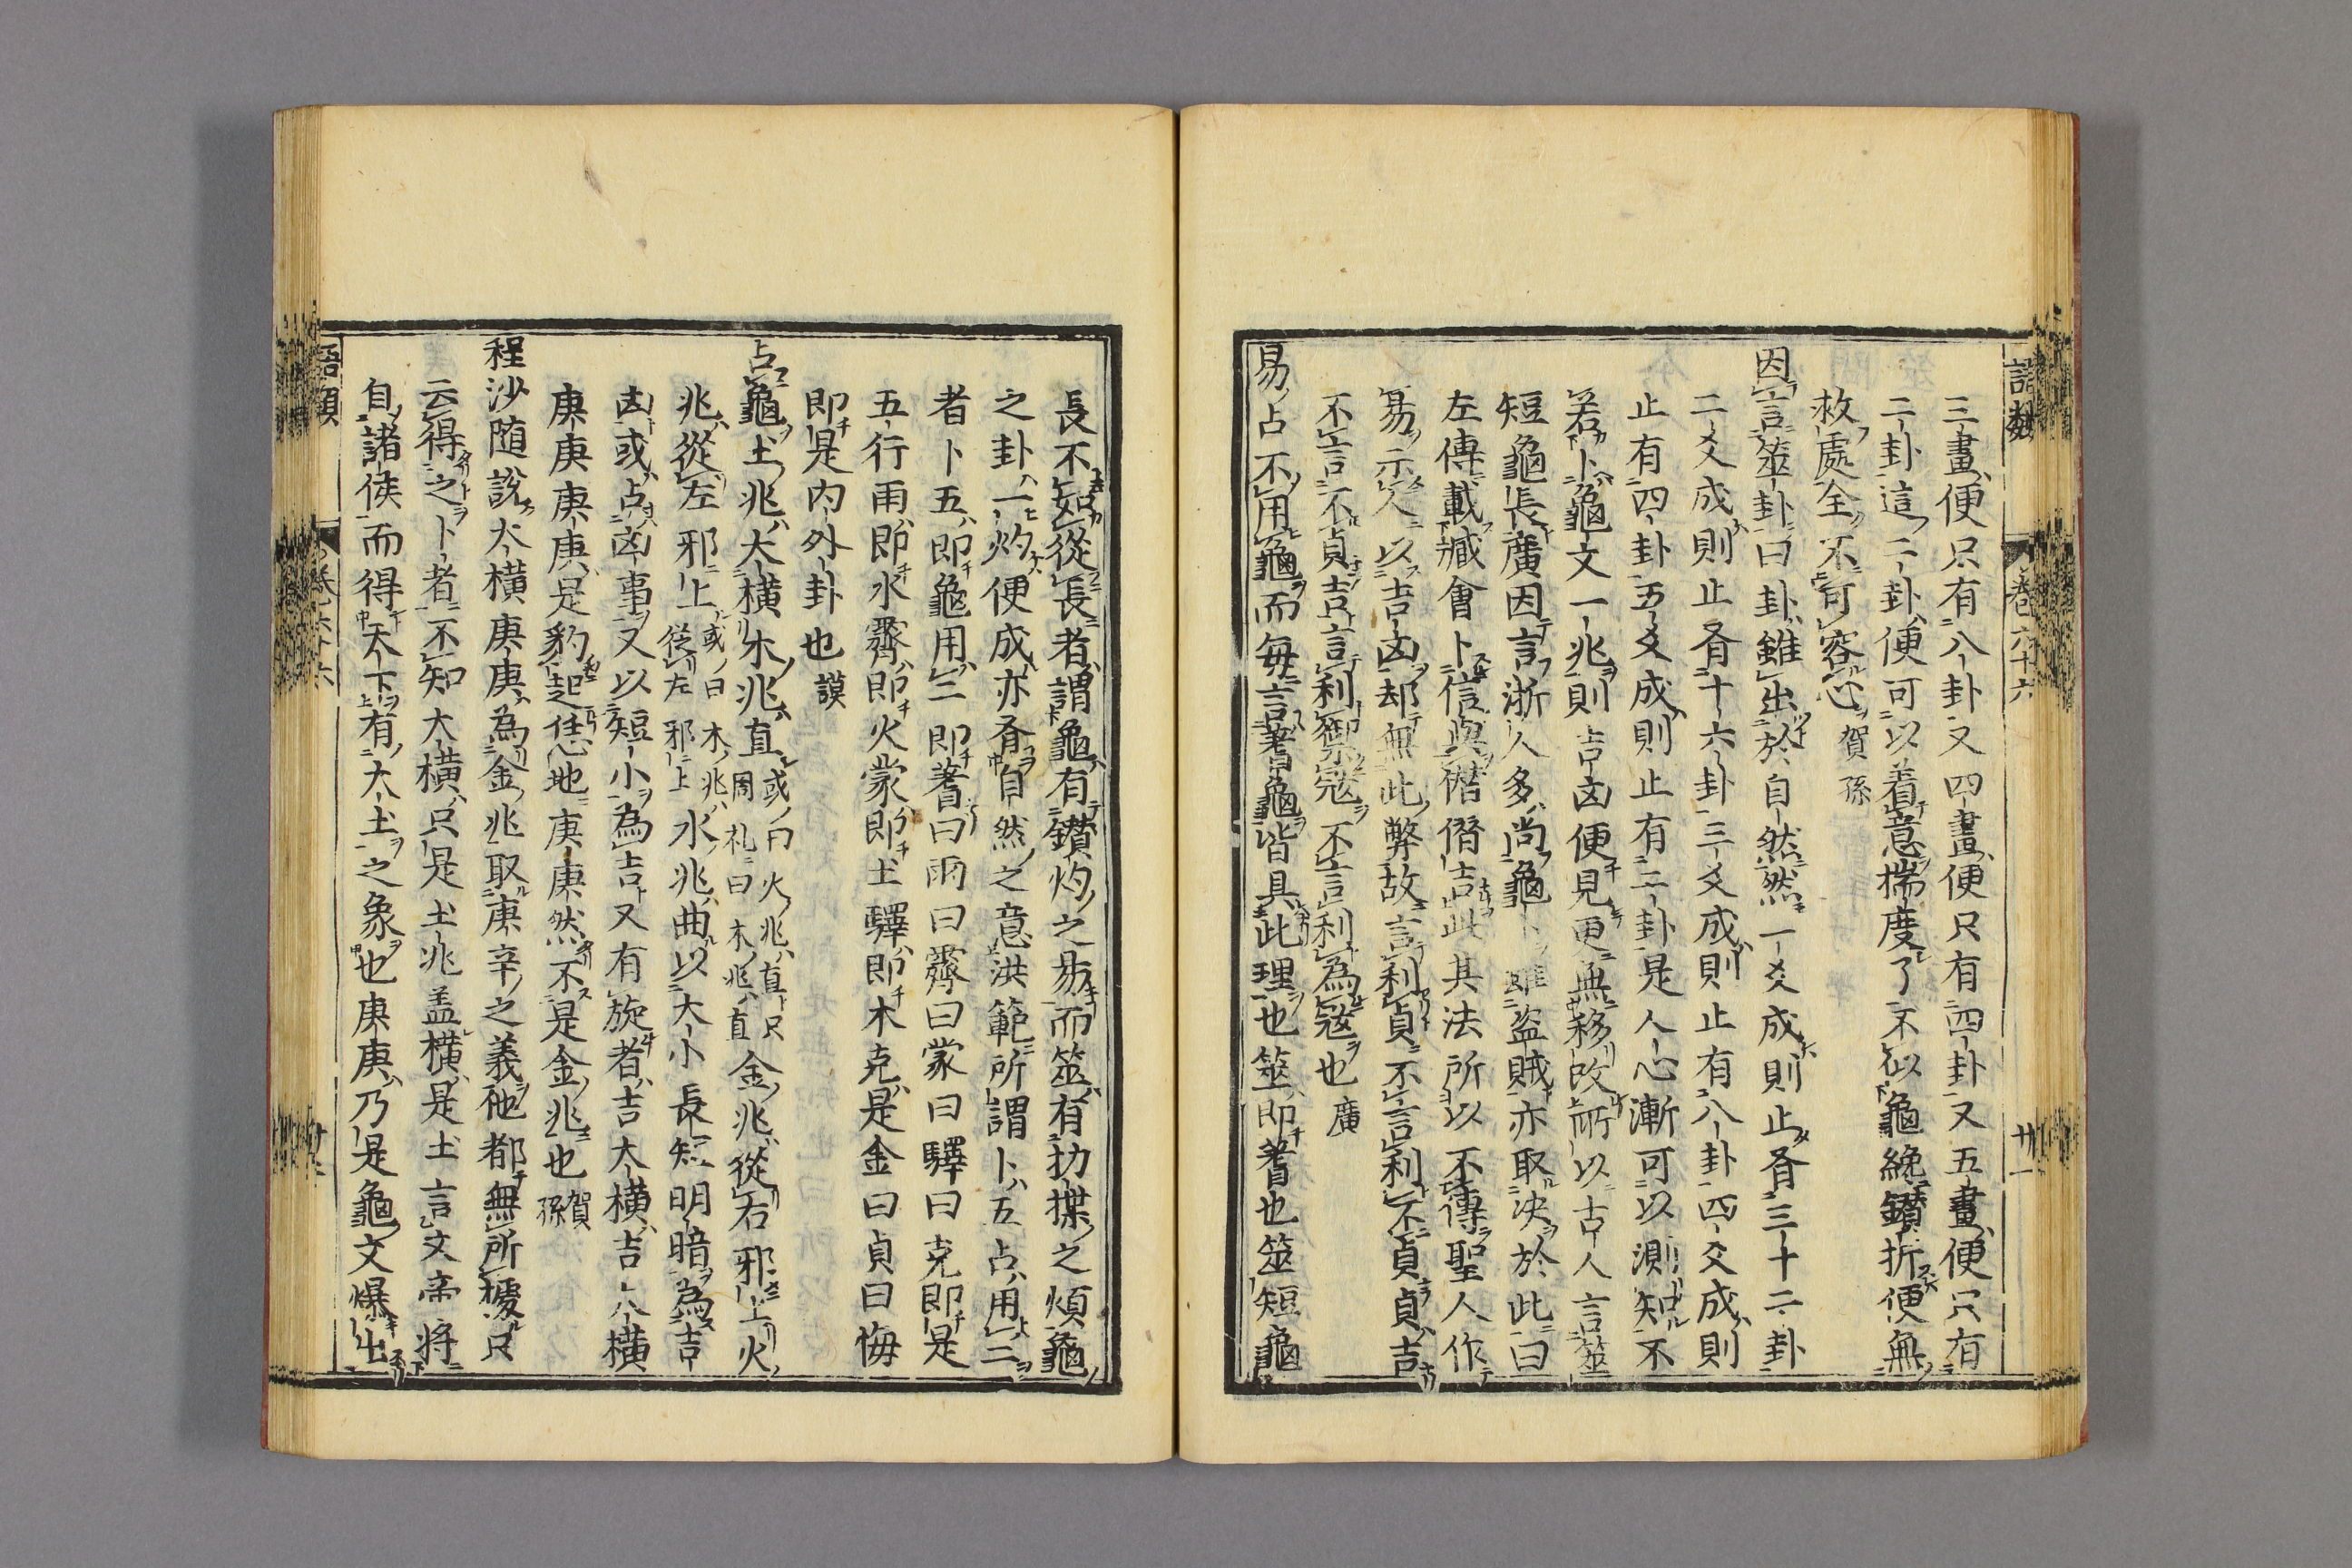 語類 卷六十六 廿一
三畫便只有八卦又四畫便只有四卦又五畫便只有
二卦這二卦便可以着意揣度了不似龜纔鑽折便無
救處全不可容心 賀孫
因言筮卦曰卦雖出於自然然一爻成則止有三十二卦
二爻成則止有十六卦三爻成則止有八卦四爻成則
止有四卦五爻成則止有二卦是人心漸可以測知不
若卜龜文一兆則吉凶便見更無移改所以古人言筮
短龜長廣因言浙人多尚龜卜雖盗賊亦取决於此曰
左傳載臧會卜信與僭僭吉此其法所以不傳聖人作
易示人以吉凶却無此弊故言利貞不言利不貞貞吉
不言不貞吉言利禦寇不言利為寇也 廣
易占不用龜而每言蓍龜皆具此理也筮即蓍也筮短龜
長不如從長者謂龜有鑽灼之易而筮有扐揲之煩龜
之卦一灼便成亦有自然之意洪範所謂卜五占用二
者卜五即龜用二即蓍曰雨曰霽曰蒙曰驛曰克即是
五行雨即水霽即火蒙即土驛即木克是金曰貞曰悔
即是内外卦也 謨
占龜土兆大横木兆直 或曰火兆直只周礼曰木兆直 金兆從右邪上火
兆從左邪上 或曰木兆從左邪上 水兆曲以大小長短明暗為吉
凶或占凶事又以短小為吉又有旋者吉大横吉大横
庚庚庚庚是豹起恁地庚庚然不是金兆也 賀孫
程沙随說大横庚庚為金兆取庚辛之義他都無所據只
云得之卜者不知大横只是土兆盖横是土言文帝將
自諸侯而得天下有大土之象也庚庚乃是龜文爆出
語類 卷六十六